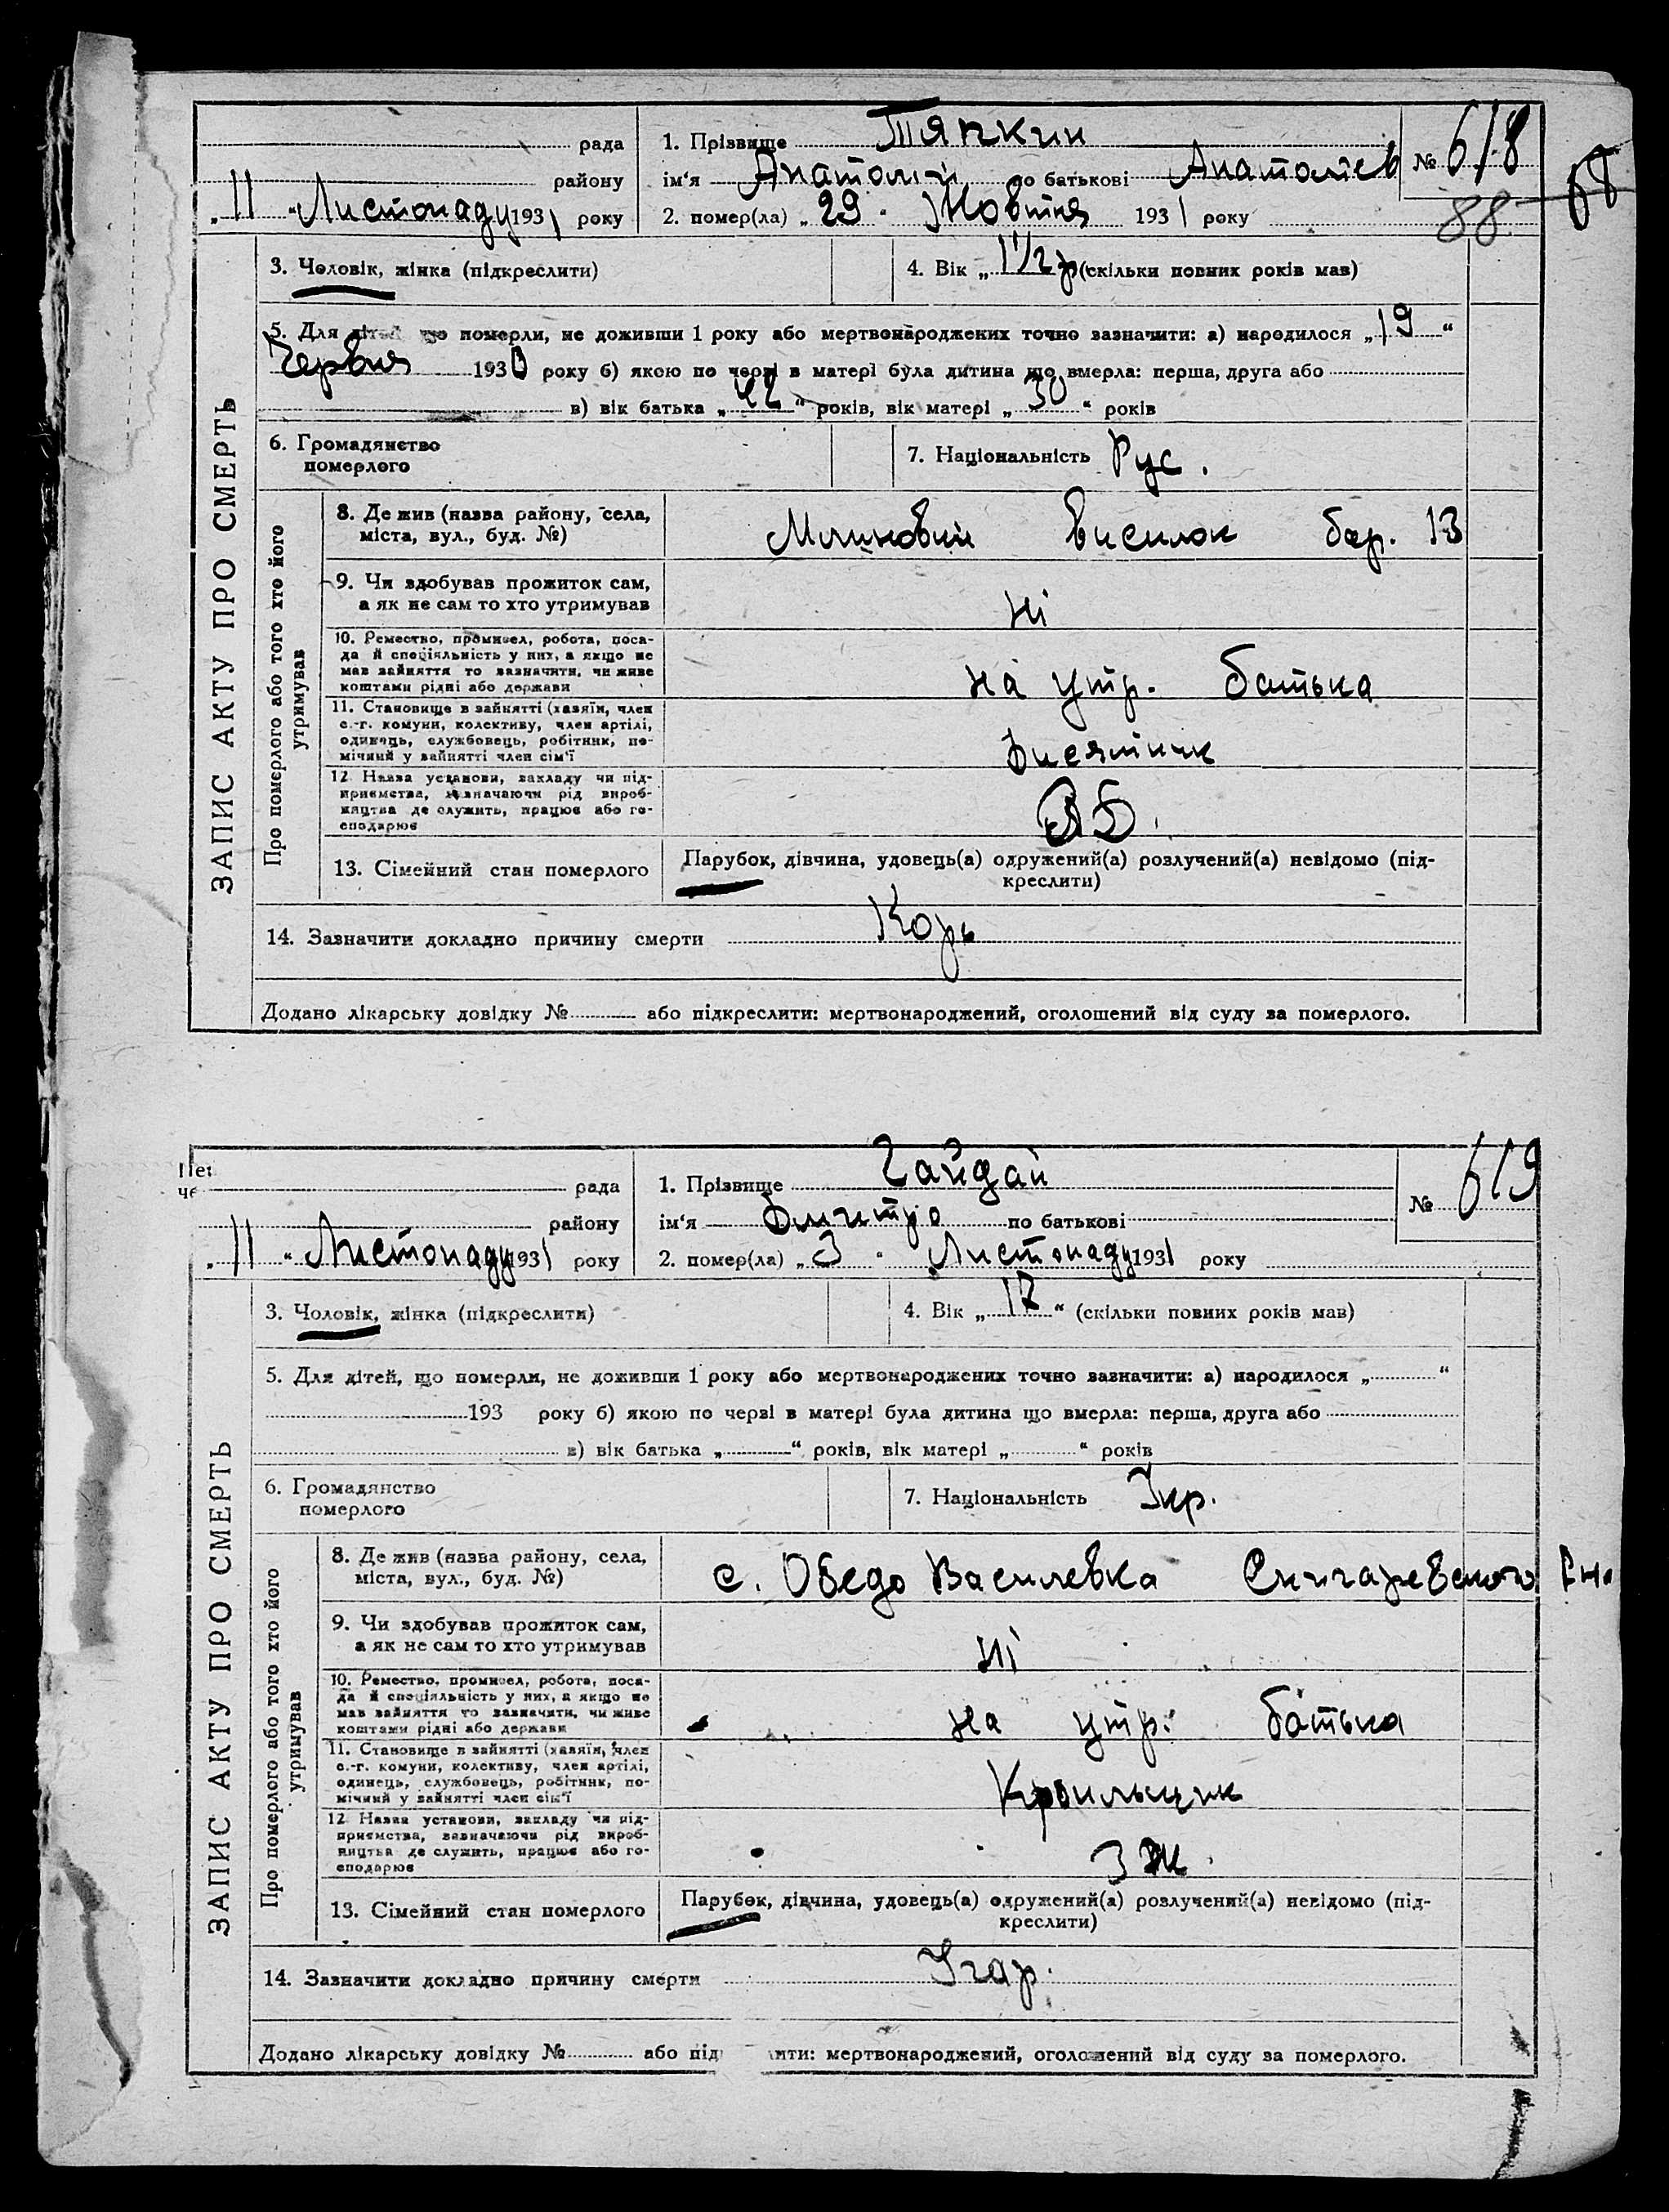 рада
1. Прізвище Тяпкин
№ 618
району
ім'я Анатолій по батькові Анатолієв
„11“ Листопаду 1931 року
2. помер(ла) „29“ Жовтня 1931 року
88
3. Чоловік, жінка (підкреслити)
4. Вік „1 1/2 р (скільки повних років мав)
5. Для дітей що померли, не доживши 1 року або мертвонароджених точно зазначити: а) народилося „19“
Червня 1930 року б) якою по черзі в матері була дитина що вмерла: перша, друга або
в) вік батька „42“ років, вік матері „30“ років
6. Громадянство
померлого
7. Національність Рус.
ЗАПИС АКТУ ПРО СМЕРТЬ
Про померлого або того хто його
утримував
8. Де жив (назва району, села,
міста, вул., буд. №)
Млиновий виселок бар. 13
9. Чи здобував прожиток сам,
а як не сам то хто утримував
Ні
10. Ремество, промисел, робота, поса-
да й спеціяльність у них, а якщо не
мав зайняття то зазначити, чи живе
коштами рідні або держави
на утр. батька
11. Становище в зайнятті (хазяїн, член
с.-г. комуни, колективу, член артілі,
одинець, службовець, робітник, по-
мічний у зайнятті член сім'ї
Висятник
12. Назва установи, закладу чи під-
приємства, зазначаючи рід вироб-
ництва де служить, працює або го-
сподарює
13. Сімейний стан померлого
Парубок, дівчина, удовець(а) одружений(а) розлучений(а) невідомо (під-
креслити)
14. Зазначити докладно причину смерти Корь
Додано лікарську довідку № або підкреслити: мертвонароджений, оголошений від суду за померлого.
рада
1. Прізвище Гайдай
№ 619
району
ім'я Дмитро по батькові
„11“ Листопаду 1931 року
2. помер(ла) „3“ Листопаду 1931 року
3. Чоловік, жінка (підкреслити)
4. Вік „17“ (скільки повних років мав)
5. Для дітей, що померли, не доживши 1 року або мертвонароджених точно зазначити: а) народилося „ “
193 року б) якою по черзі в матері була дитина що вмерла: перша, друга або
в) вік батька „ “ років, вік матері „ “ років
6. Громадянство
померлого
7. Національність Укр.
ЗАПИС АКТУ ПРО СМЕРТЬ
Про померлого або того хто його
утримував
8. Де жив (назва району, села,
міста, вул., буд. №)
с. Обедо Василевка Снигаревського Рн.
9. Чи здобував прожиток сам,
а як не сам то хто утримував
Ні
10. Ремество, промисел, робота, поса-
да й спеціяльність у них, а якщо не
мав зайняття то зазначити, чи живе
коштами рідні або держави
на утр. батька
11. Становище в зайнятті (хазяїн, член
с.-г. комуни, колективу, член артілі,
одинець, службовець, робітник, по-
мічний у зайнятті член сім'ї
Кроильщик
12. Назва установи, закладу чи під-
приємства, зазначаючи рід вироб-
ництва де служить, працює або го-
сподарює
13. Сімейний стан померлого
Парубок, дівчина, удовець(а) одружений(а) розлучений(а) невідомо (під-
креслити)
14. Зазначити докладно причину смерти Угар.
Додано лікарську довідку № або підкреслити: мертвонароджений, оголошений від суду за померлого.